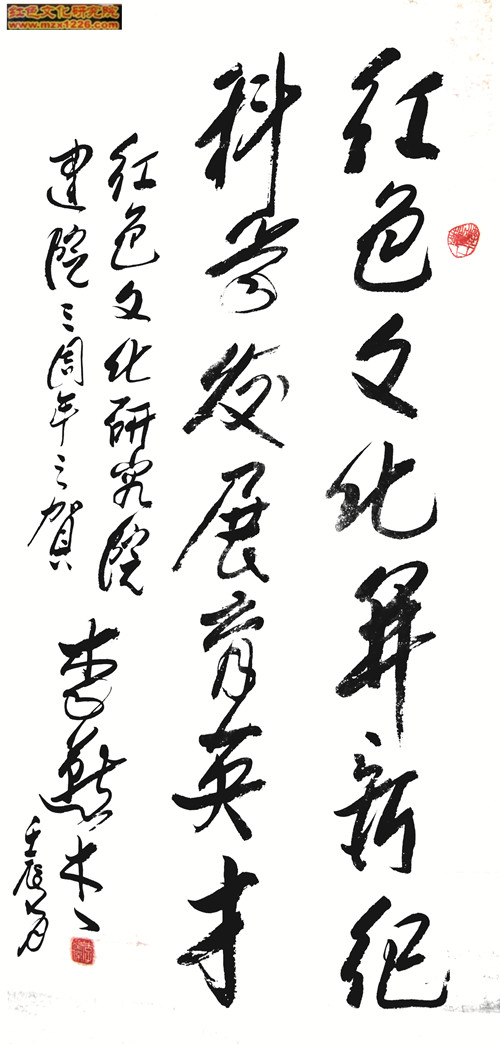 红色文化研究院
www.mzx1226.com
红色文化開新纪
科学发展育英才
红色文化研究院
建院三周年之賀
李燕杰
壬辰